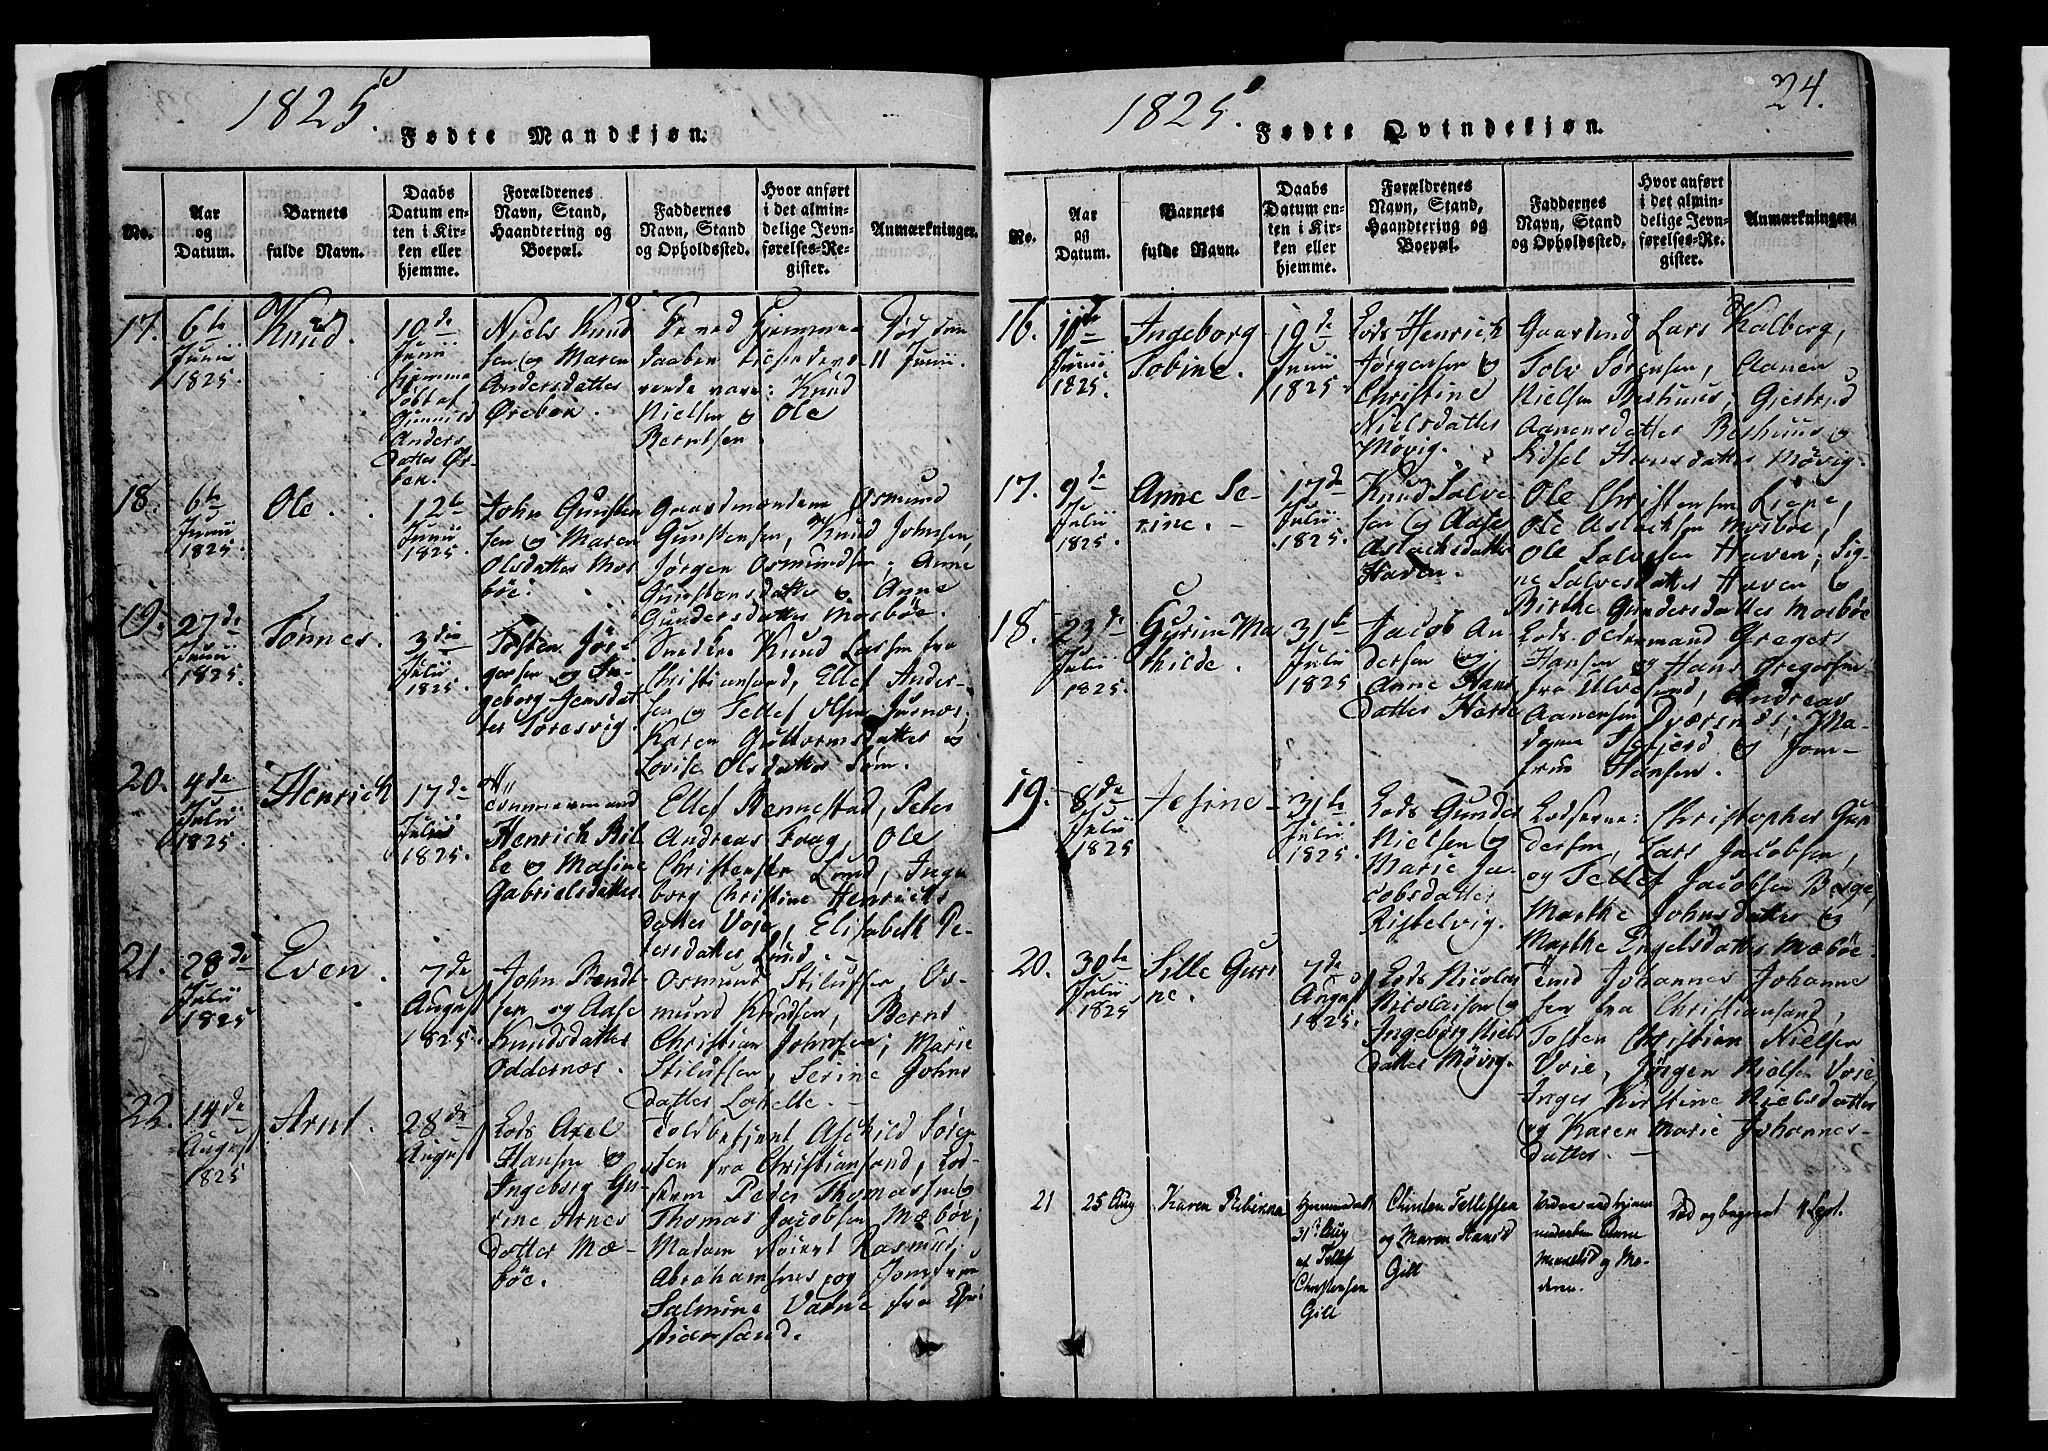 1825.
Fødte Mandkjøn.
No.
Aar
og
Datum.
Barnets
fulde Navn.
Daabs
Datum en-
ten i Kir-
ken eller
hjemme.
Forældrenes
Navn, Stand,
Haandtering og
Boepæl.
Faddernes
Navn, Stand
og Opholdssted.
Hvor anført
i det almin-
delige Jevn-
førelses-Re-
gister.
Anmærkninger.
17.
6te
Junii
1825.
Knud.
10de
Junii
hjemme
døbt af
Gunnild
Anders
datter Ør-
ben.
Niels Knud
sen og Maren
Andersdatter
Øreben.
Ved Hjemme
daaben tilstedeve
rende vare: Knud
Nielsen og Ole
Berntsen.
Død den
11 Junii.
18.
6te
Junii
1825.
Ole.
12te
Junii
1825.
John Gunsten
sen og Maren
Olsdatter Mos
bøe.
Gaardmændene Osmund
Gunstensen, Knud Johnsen,
Jørgen Osmundsen; Anne
Gunstensdatter og Anne
Gundersdatter Mosbøe.
19.
27de
Junii
1825.
Tønnes.
3die
Julii
1825.
Tosten Jør-
gensen og In-
geborg Jensdat
ter Toresvig.
Snedker Knud Larsen fra
Christiansand, Ellef Ander-
sen og Tellef Olsen Jusnæs;
Karen Guttormsdatter og
Lovise Olsdatter Søm.
20.
4de
Julii
1825.
Henrich
17de
Julii
1825.
Tømmermand
Henrich Bil
le og Masine
Gabrielsdatter
Ellef Rennestad, Peter
Andreas Faag, Ole
Christensen Lund, Inge
borg Christine Henrichs
datter Voie, Elisabeth Pe-
tersdatter Lund.
21.
28de
Julii
1825
Even.
7de
August
1825.
John Bendt
sen og Aase
Knudsdatter
Oddernæs.
Osmund Stilufsen, Os-
mund Knudsen, Bernt
Christian Johnsen; Marie
Stilufsen, Serine Johns
datter
22.
14de
August
1825
Arnt.
28de
August
Lods Axel
Hansen og
Ingeborg Gu-
rine Arnes
datter Mæ-
bøe.
Toldbetjent Aschild Søren
sen fra Christiansand, Lod-
serne Peder Thomassen og
Thomas Jacobsen Mæbøe;
Madam Rasmus
Abrahamsens og Jomfrue
Salmine fra Chri
stiansand.
1825.
24.
Fødte Qvindekjøn.
No.
Aar
og
Datum.
Barnets
fulde Navn.
Daabs
Datum en-
ten i Kir-
ken eller
hjemme.
Forældrenes
Navn, Stand,
Haandtering og
Boepæl.
Faddernes
Navn, Stand
og Opholdssted.
Hvor anført
i det almin-
delige Jevn-
førelses-Re-
gister.
Anmærkninger.
16.
Junii
1825.
Ingeborg
Tobine.
19de
Junii
1825.
Lods Henrich
Jørgensen og
Christine
Nielsdatter
Møvig.
Lars Kalberg,
Tolv Sørensen, Aanen
Nielsen Røshuus, Gjestrud
Aanensdatter Røshuus og
Sidsel Hansdatter Møvig.
17.
9de
Julii
1825.
Anne Se-
rine.
17de
Julii
1825.
Knud Salve
sen og Aase
Aslachsdatter
Haven.
Ole Christensen Liene,
Ole Aslachsen Mosbøe,
Ole Salvesen Haven; Sig-
ne Salvesdatter Haven og
Birthe Gundersdatter Mosbøe
18.
23de
Julii
1825.
Gurine Ma
thilde.
31te
Julii
1825
Jacob An
dersen og
Anne Hans
datter Herse
Lods-Oldermand Greger
Hansen og Hans Gregersen
fra Ulvøsund, Andreas
Aanensen Dværsnæs; Ma-
dame og Jom-
frue Hansen.
19.
8de
Julii
1825
Jesine
31te
Julii
1825.
Lods Gunder
Nielsen og
Marie Ja-
cobsdatter
Ristelvig.
Lodserne: Christopher Gun
dersen, Lars Jacobsen,
og Tellef Jacobsen Berge,
Marthe Johnsdatter og
Marthe Engelsdatter Mæbøe
20.
30te
Julii
1825
Sille Guri
ne.
7de
August
1825.
Lods Nicolai
Nicolaisen og
Ingeborg Niels
datter Møvig.
Johannes Johanne
sen fra Christiansand,
Tosten Christian Nielsen
Voie, Jørgen Nielsen Voie,
Inger Kirstine Nielsdatter
og Karen Marie Johannes-
datter.
21
25 Aug
Karen Ribinna
Hjemmedøbt
31te Aug
af Tellef
Christensen
Gill
Christen Tellefsen
og Maren Hansd
Gill
Vidner ved Hjem
medaaben Anne
og Mo-
deren.
Død og begravet 4 Sept.